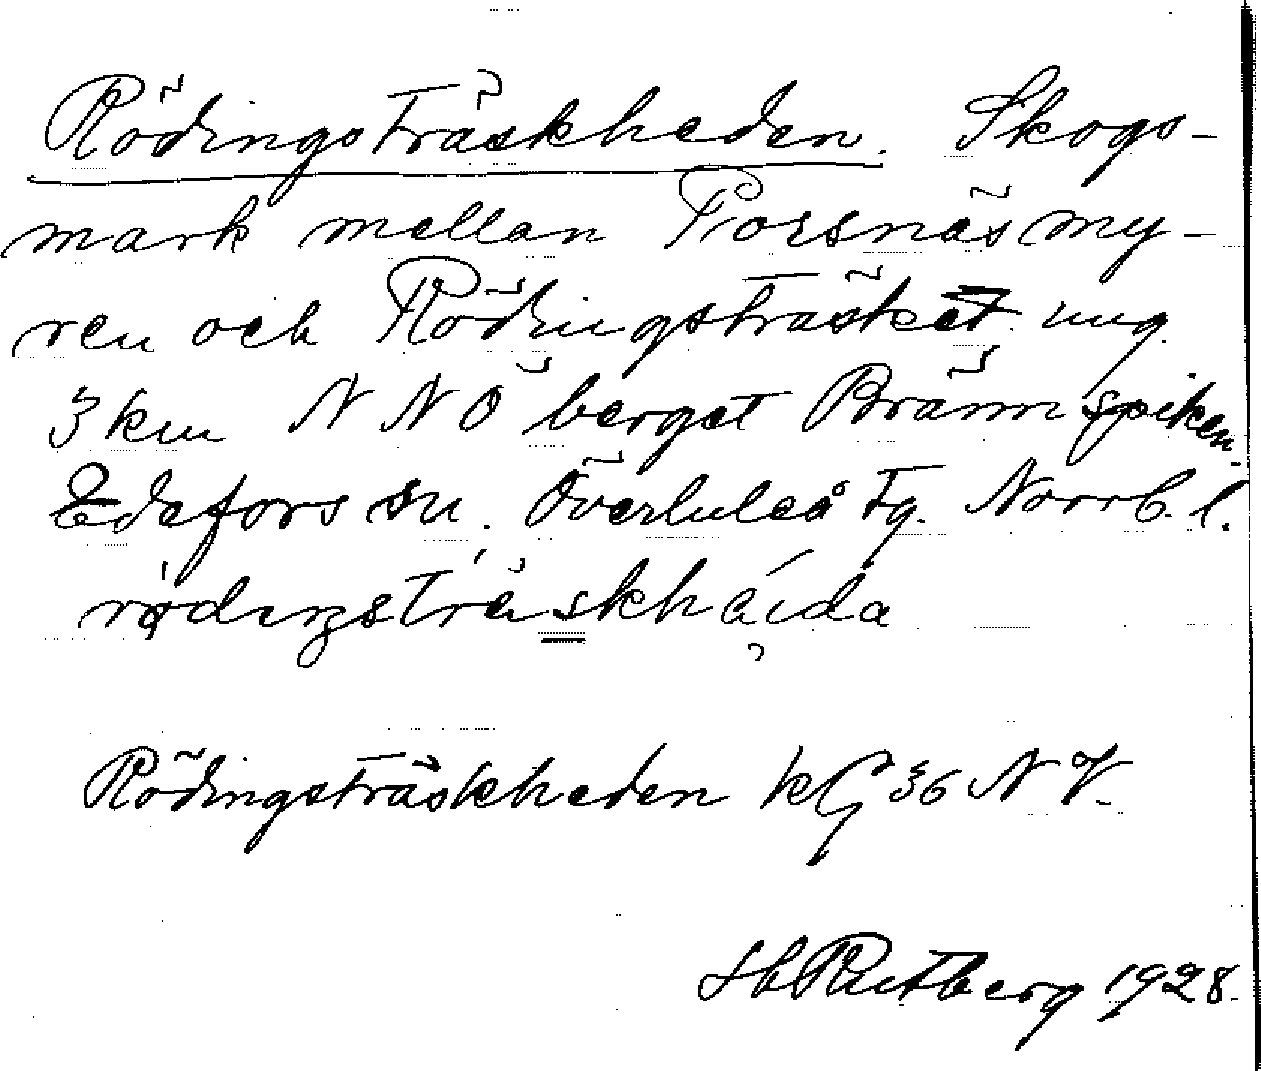 Rödingsträskheden. Skogs-
mark mellan Forsnäsmy-
ren och Rödingsträsket ung.
3 km NNÖ berget Brännspiken.
Edefors sn. Överluleå tg. Norrb. l.
Rödingsträskheden kG 36 NV.
Hb Rutberg 1928.